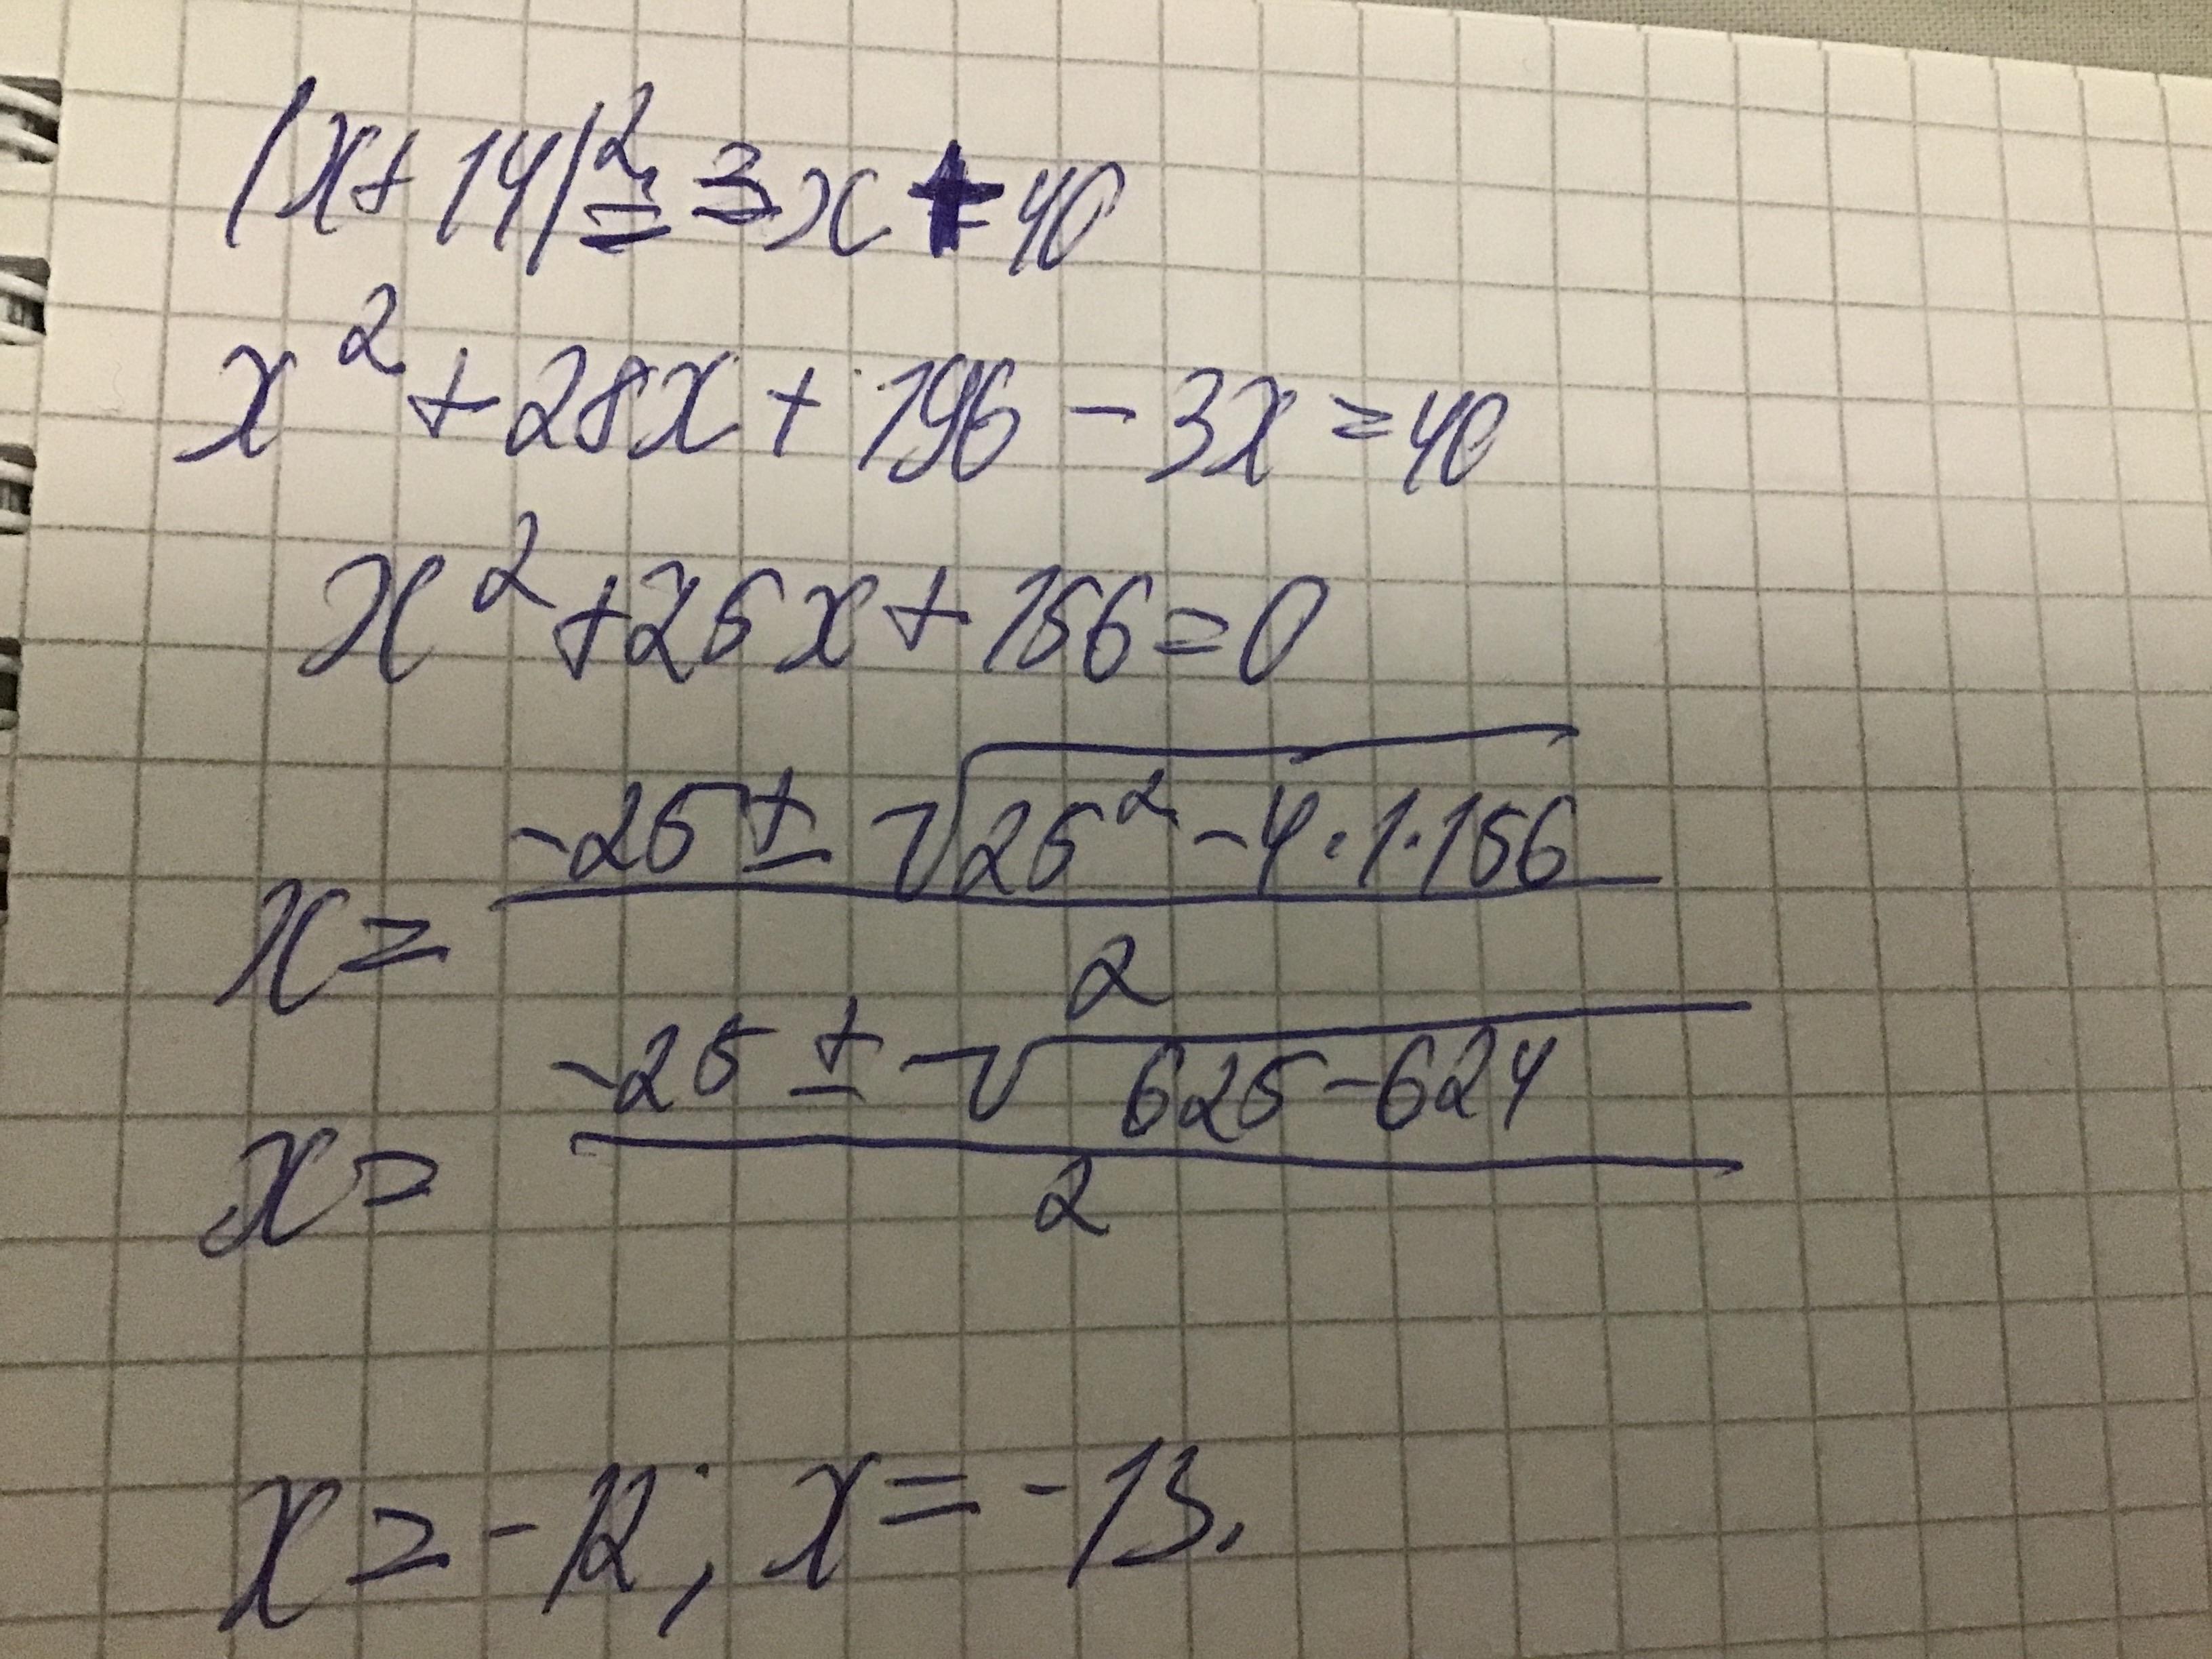 (x+14)²=3x+40
x²+28x+196-3x=40
x²+25x+156=0
x=(-25±√(25²-4·1·156))/2
x=(-25±√(625-624))/2
x=-12; x=-13.